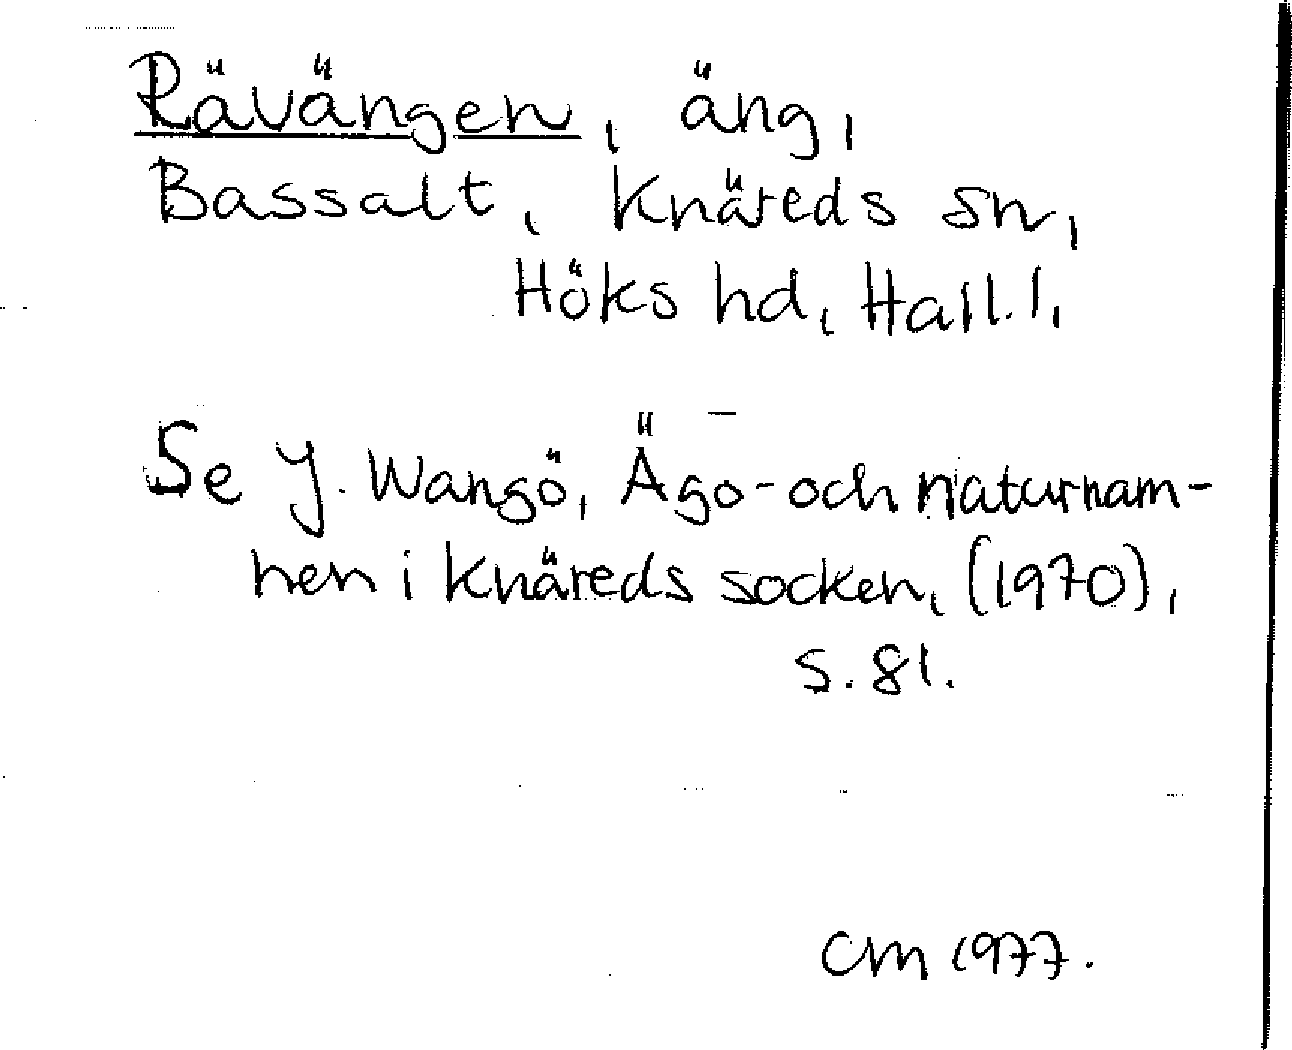 Rävängen, äng,
Bassalt, Knäreds sn,
Höks hd, Hall. l,
Se J. Wangö, Ägo- och naturnam-
nen i Knäreds socken, (1970),
s. 81.
CM 1977.